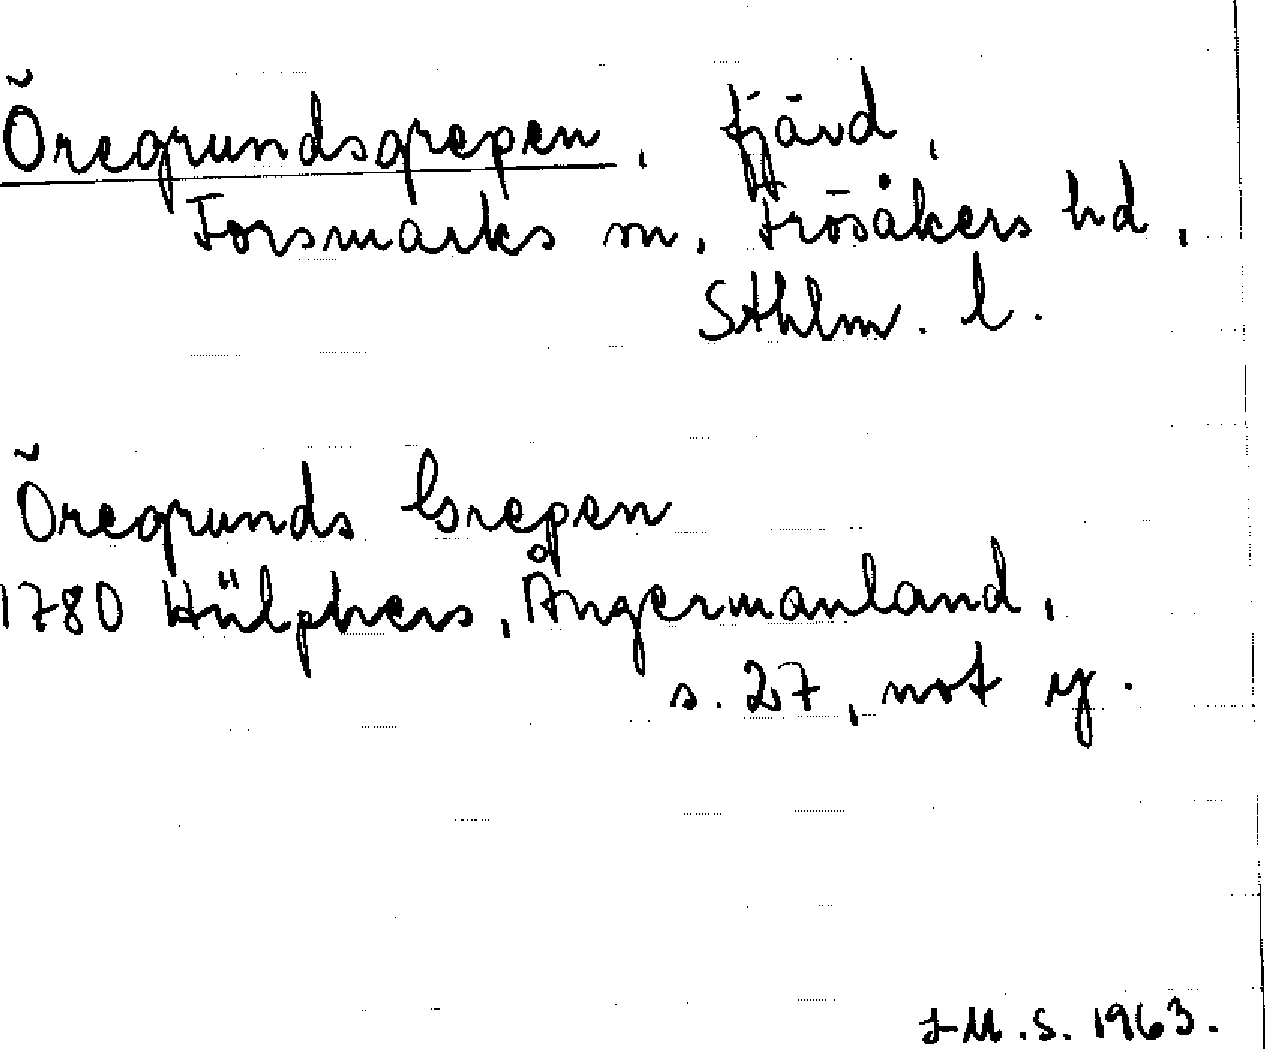 Öregrundsgrepen, fjärd,
Forsmarks sn, Frösåkers hd,
Sthlm. l.
Öregrunds Grepen
1780 Hülphers, Ångermanland,
s. 27, not y.
I-M.S. 1963.